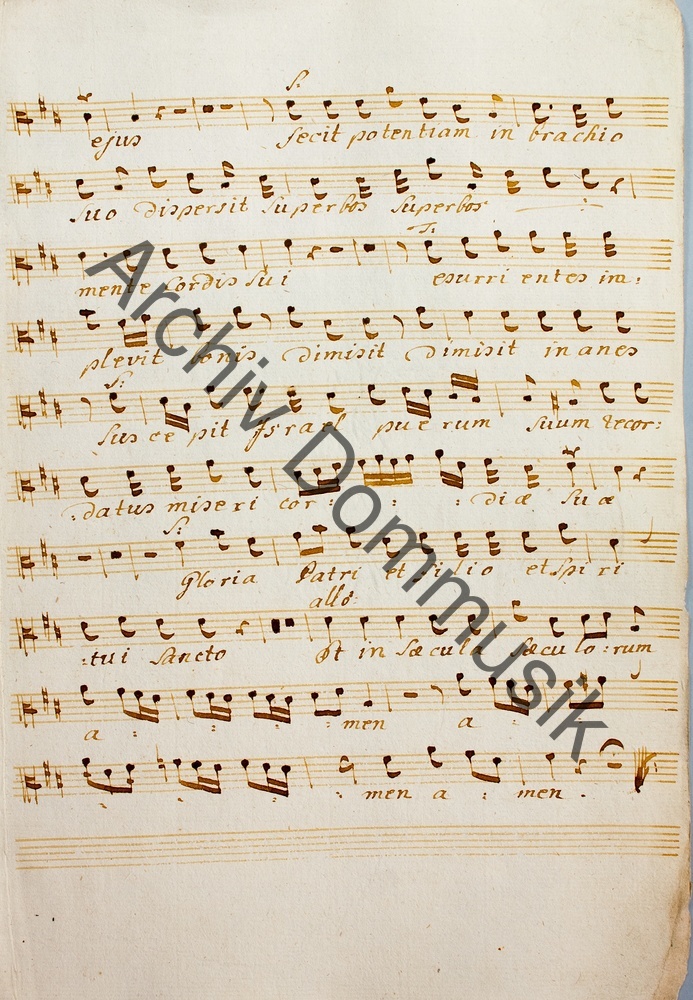 S:
ejus fecit potentiam in brachio
suo dispersit superbos superbos
T:
mente Cordis sui esurrientes im:
plevit bonis dimisit dimisit inanes
S:
Suscepit Israel puerum suum recor:
:datus miseri cor: : : : diæ suæ
S:
Gloria Patri et filio et Spiri
allo:
:tui Sancto Et in Sæcula Sæculo:rum
a : : : : men a :
: : : men a : men .
Archiv Dommusik